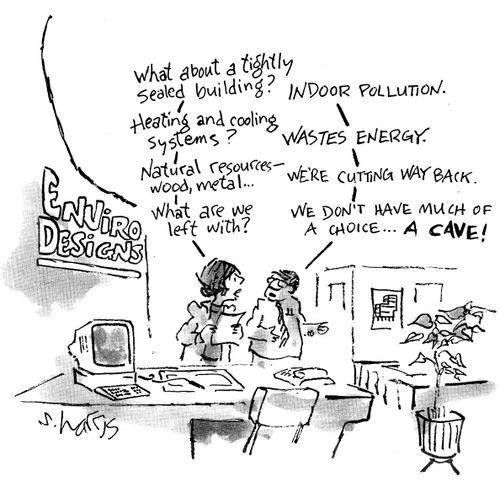 What about a tightly
sealed building?
INDOOR POLLUTION.
Heating and cooling
systems?
WASTES ENERGY.
Natural resources—
wood, metal...
WE'RE CUTTING WAY BACK.
What are we
left with?
WE DON'T HAVE MUCH OF
A CHOICE... A CAVE!
ENVIRO
DESIGNS
S. Harris